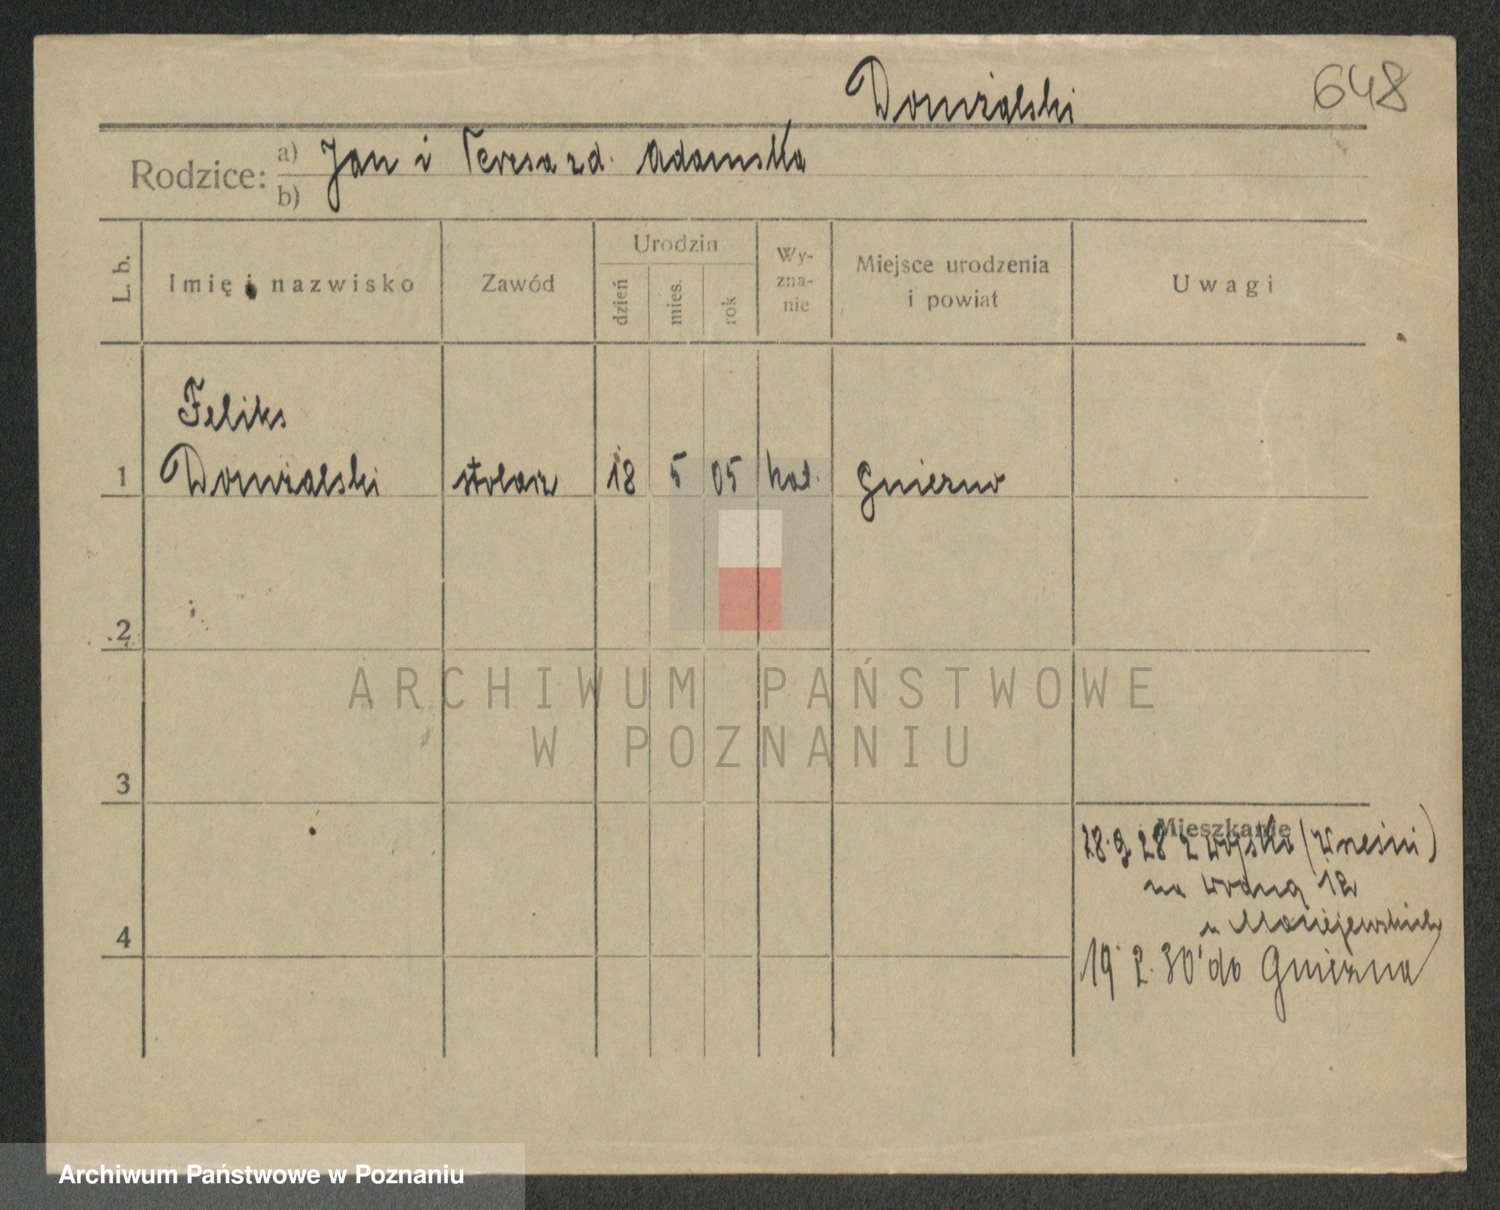 Domżalski
648
Rodzice:
a) Jan i Teresa z d. Adamska
b)
L. b.
Imię i nazwisko
Zawód
Urodzin
dzień
mies.
rok
Wy-
zna-
nie
Miejsce urodzenia
i powiat
Uwagi
Feliks
1 Domżalski stolarz 18 5 05 kat. Gniezno
2
ARCHIWUM PAŃSTWOWE
W POZNANIU
3
Mieszkanie
28.9 28 z wojska (Wrześni)
na Wodną 12
u Maciejewskich
4
19 2. 30 do Gniezna
Archiwum Państwowe w Poznaniu